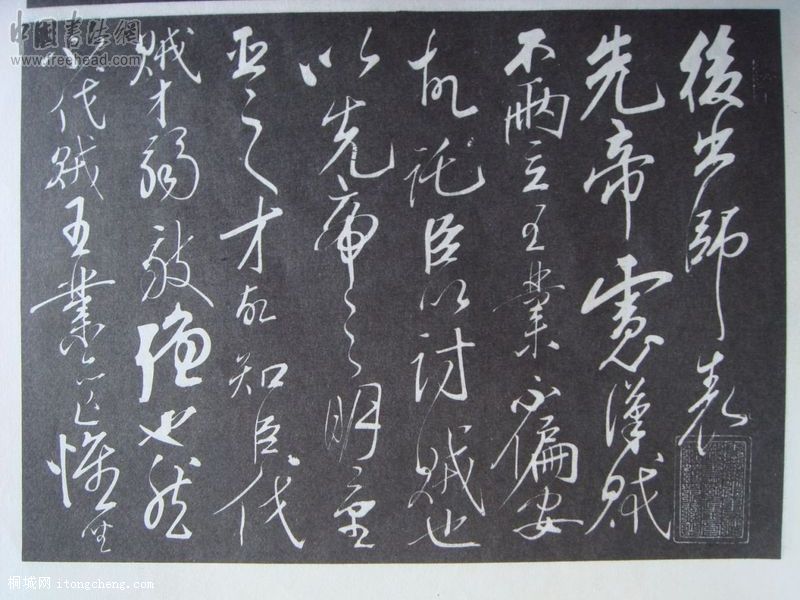 中國書法網
www.freehead.com
後出師表
先帝慮漢賊
不兩立王業不偏安
故託臣以討賊也
以先帝之明量
臣之才故知臣伐
賊才弱敵強也然
不伐賊王業亦亡惟坐
桐城网 itongcheng.com